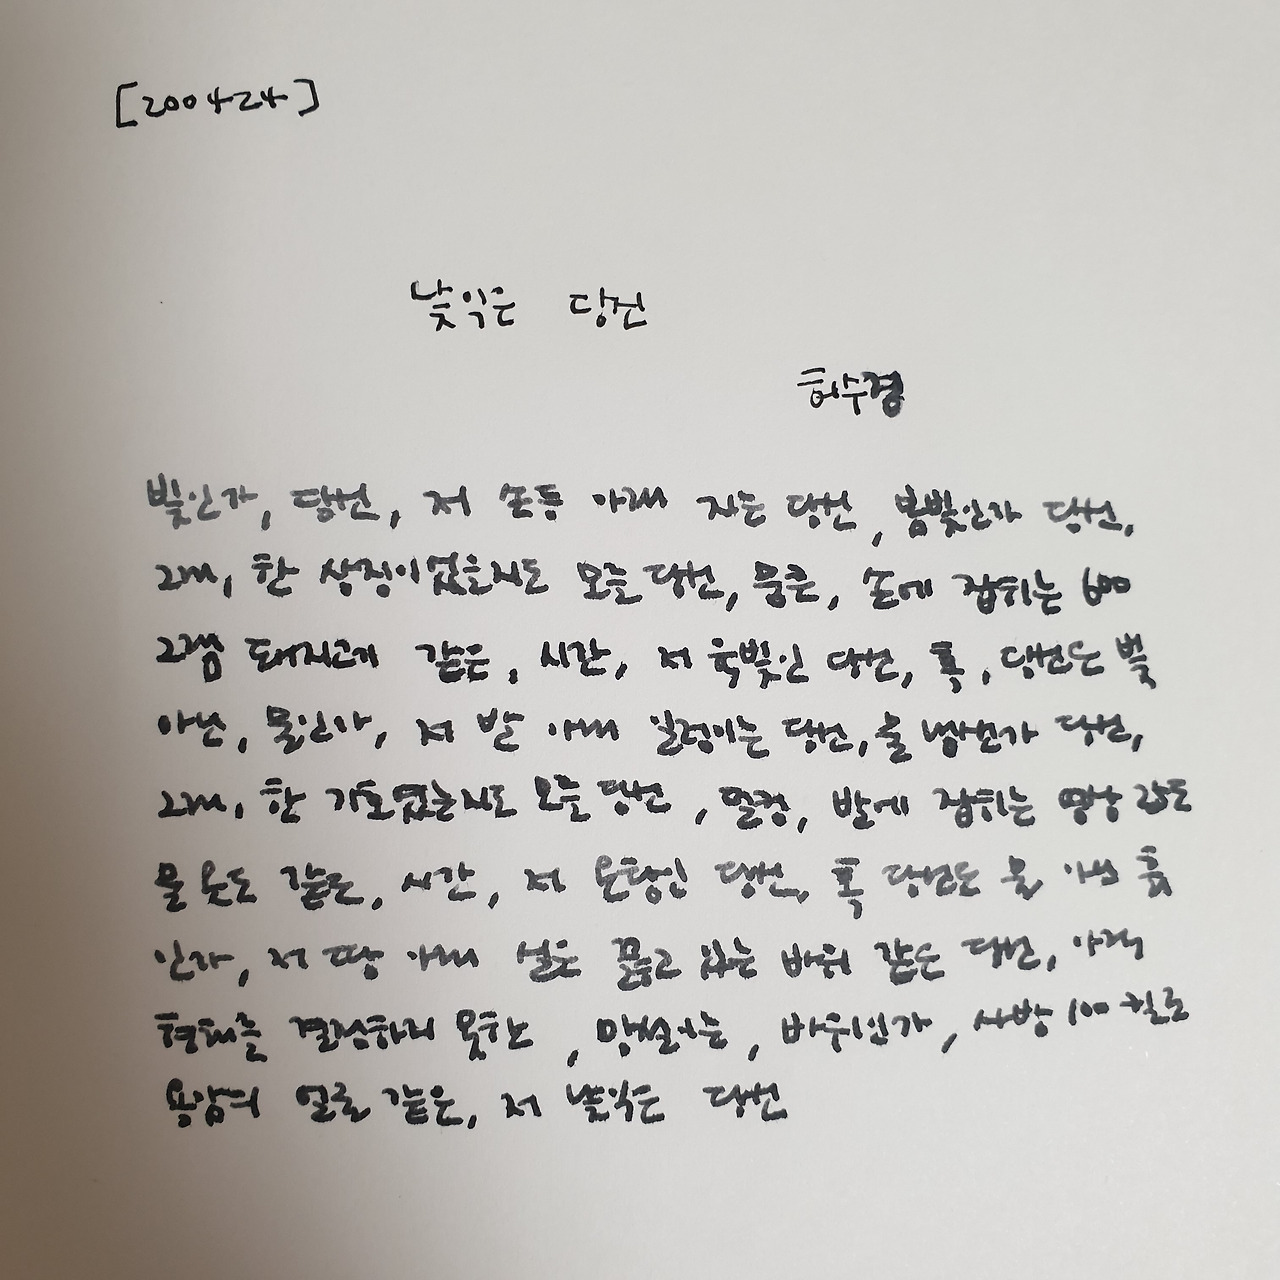 [200424]
낯익은 당신
허수경
빛인가, 당신, 저 손등 아래 지는 당신, 봄빛인가 당신,
그래, 한 상징이었을지도 모를 당신, 뭉큰, 손에 잡히는 600
그램 돼지고기 같은, 시간, 저 육빛인 당신, 혹, 당신은 빛
아닌, 물인가, 저 발 아래 일렁이는 당신, 물 냉산가 당신,
그래, 한 기호였는지도 모를 당신, 멀컹, 발에 잡히는 영상 25도
물 온도 같은, 시간, 저 온탕인 당신, 혹 당신은 물 아닌 흙
인가, 저 땅 아래 실은 끓고 있는 바위 같은 당신, 아직
형태를 결정하지 못한, 망설이는, 바위인가, 사방 100 킬로
용암의 얼굴 같은, 저 낯익은 당신